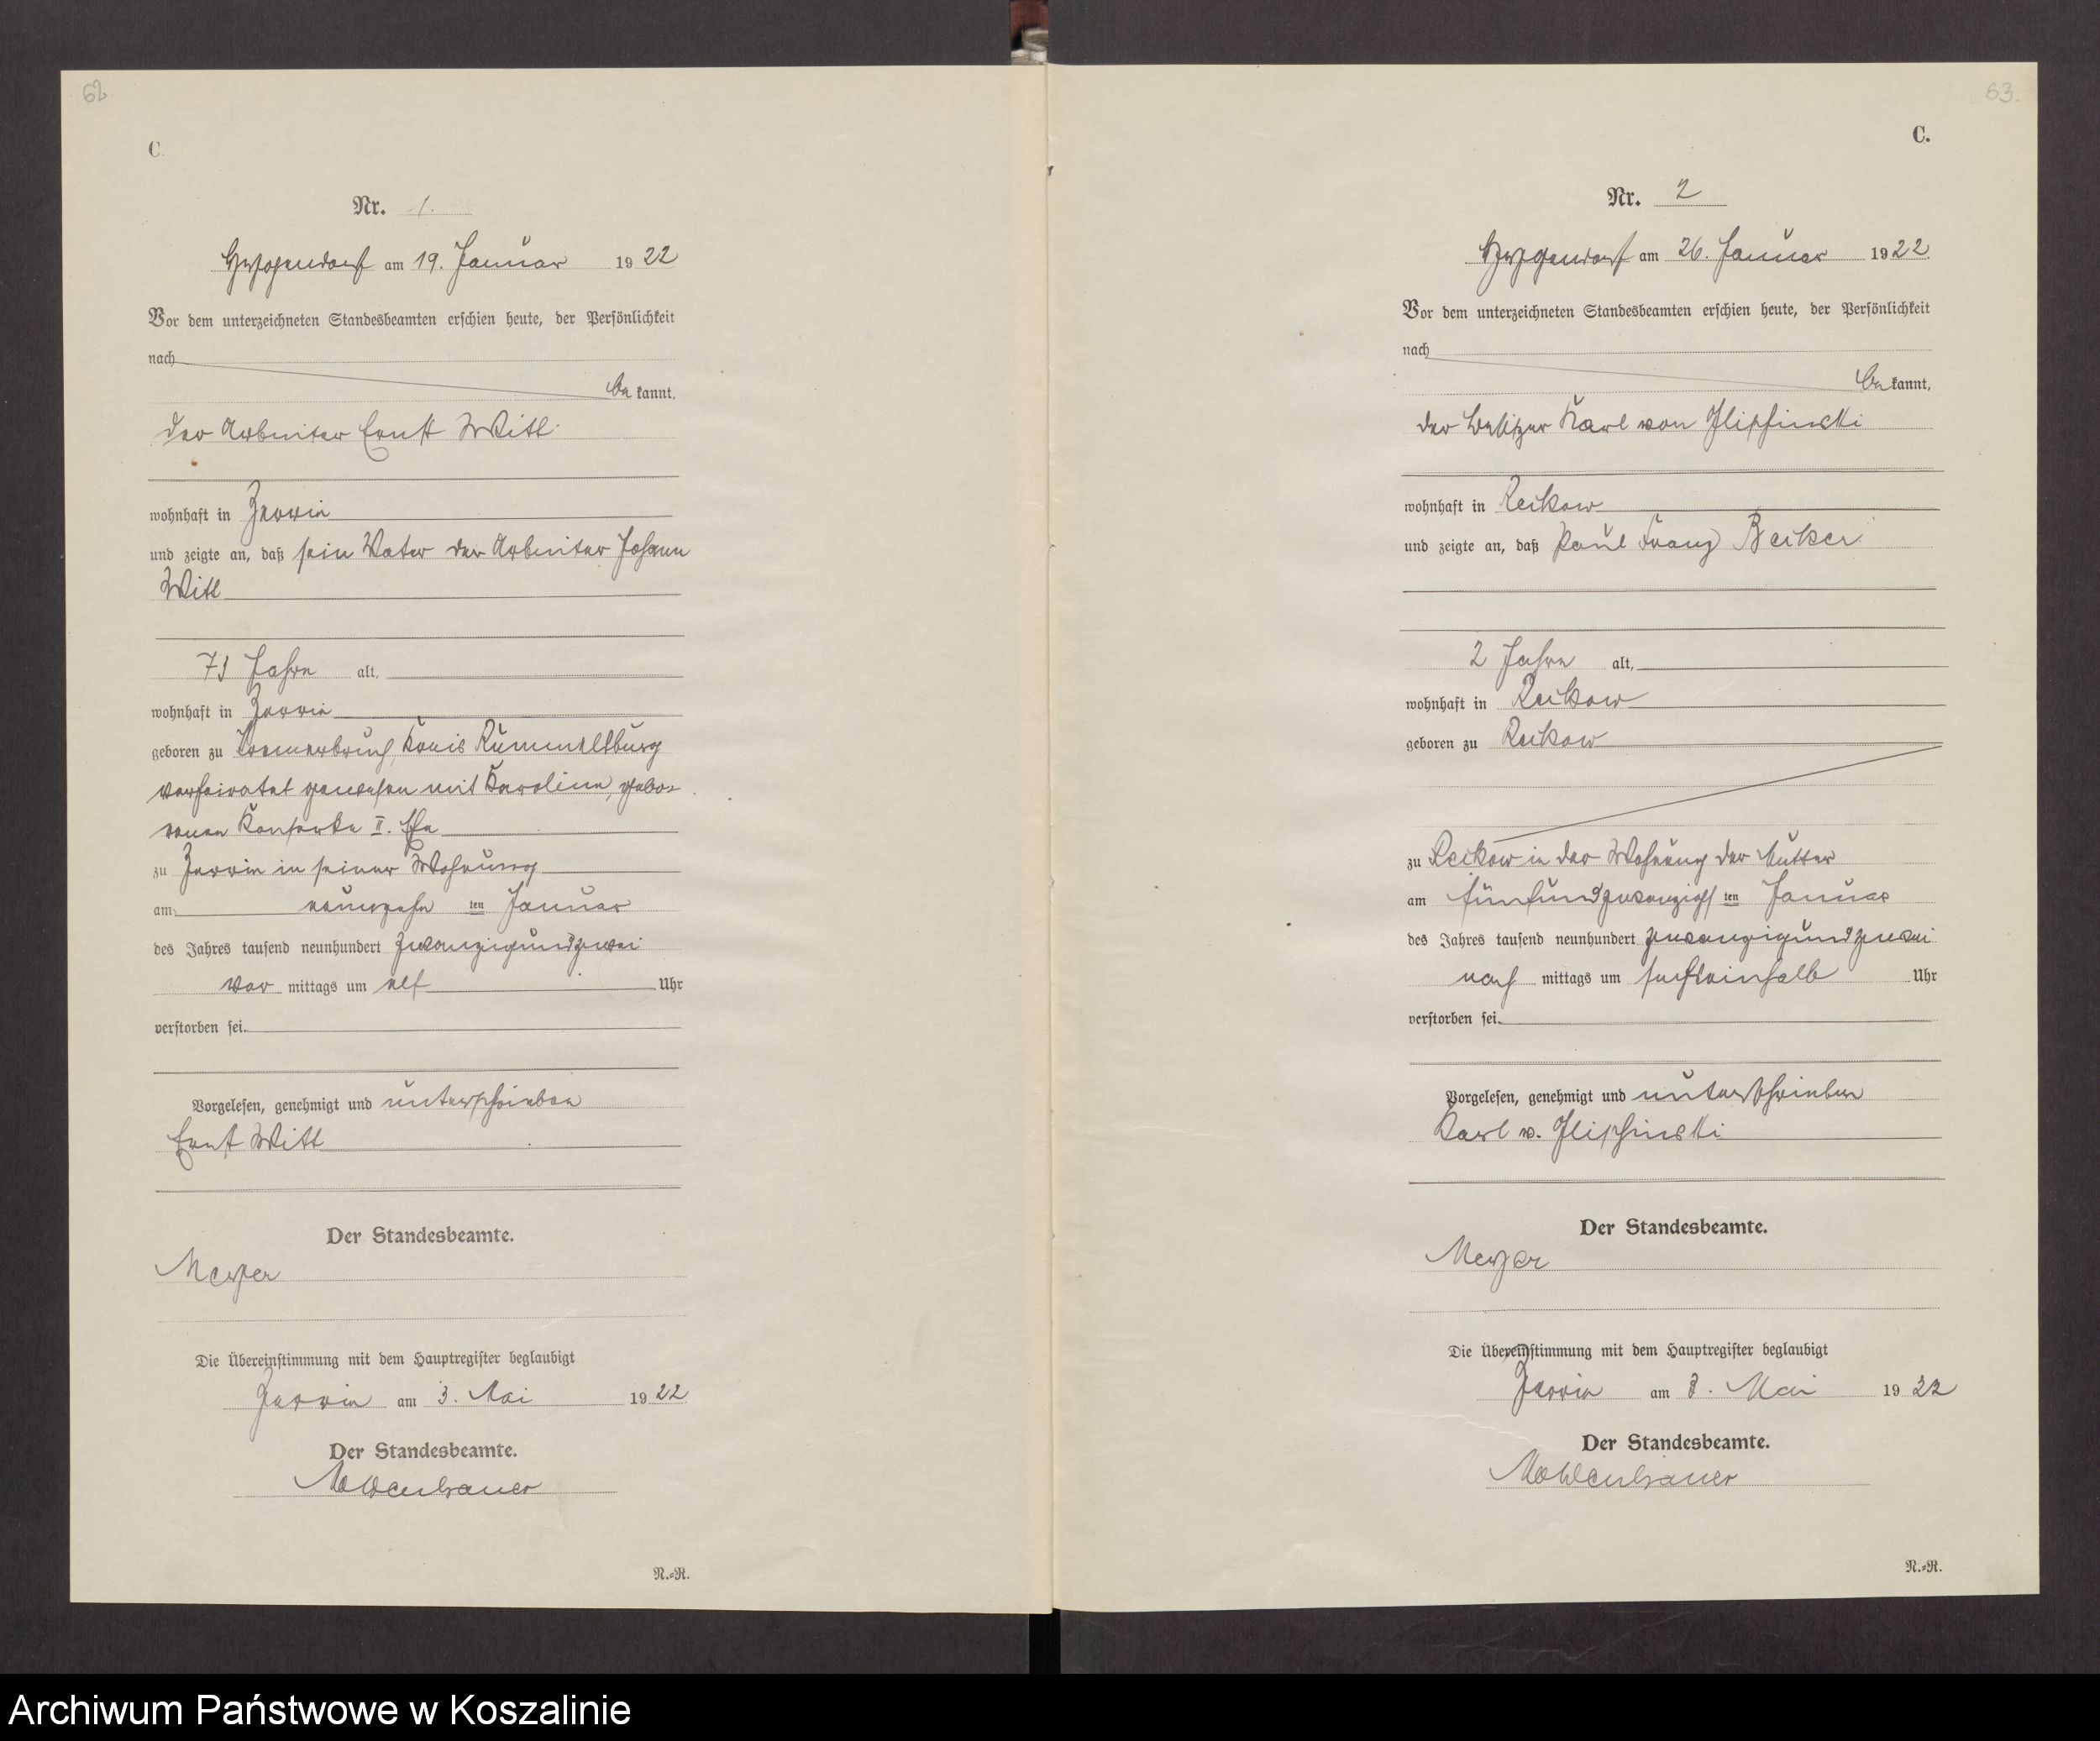 62
C.
Nr. 1.
am 19. Januar 1922
Vor dem unterzeichneten Standesbeamten erschien heute, der Persönlichkeit
nach
be kannt,
der Arbeiter Ernst Witt
wohnhaft in Zerrin
und zeigte an, daß sein Vater der Arbeiter Johann
Witt
71 Jahre alt,
wohnhaft in Zerrin
geboren zu Kremerbruch, Kreis Rummelsburg
verheiratet gewesen mit Karoline, gebo-
renen II. Ehe
zu Zerrin in seiner Wohnung
am neunzehn ten Januar
des Jahres tausend neunhundert zwanzigundzwei
vor mittags um elf Uhr
verstorben sei.
Vorgelesen, genehmigt und unterschrieben
Ernst Witt
Der Standesbeamte.
Meyer
Die Übereinstimmung mit dem Hauptregister beglaubigt
Zerrin am 3. Mai 1922
Der Standesbeamte.
N.=R.
63.
C.
Nr. 2
am 26. Januar 1922.
Vor dem unterzeichneten Standesbeamten erschien heute, der Persönlichkeit
nach
be kannt,
der Besitzer Karl von
wohnhaft in Reckow
und zeigte an, daß Paul Franz Becker
2 Jahre alt,
wohnhaft in Reckow
geboren zu Reckow
zu Reckow in der Wohnung der Mutter
am fünfundzwanzigsten Januar
des Jahres tausend neunhundert zwanzigundzwei
nach mittags um sechseinhalb Uhr
verstorben sei.
Vorgelesen, genehmigt und unterschrieben
Karl v.
Der Standesbeamte.
Meyer
Die Übereinstimmung mit dem Hauptregister beglaubigt
Zerrin am 3. Mai 1922
Der Standesbeamte.
N.=R.
Archiwum Państwowe w Koszalinie